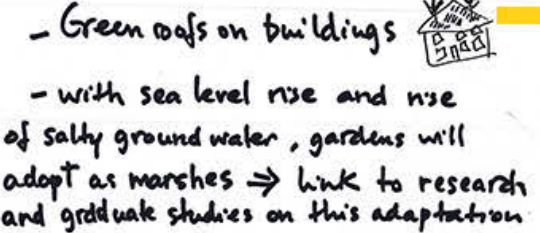 - Green roofs on buildings
- with sea level rise and rise
of salty ground water, gardens will
adopt as marshes ⇒ link to research
and graduate studies on this adaptation